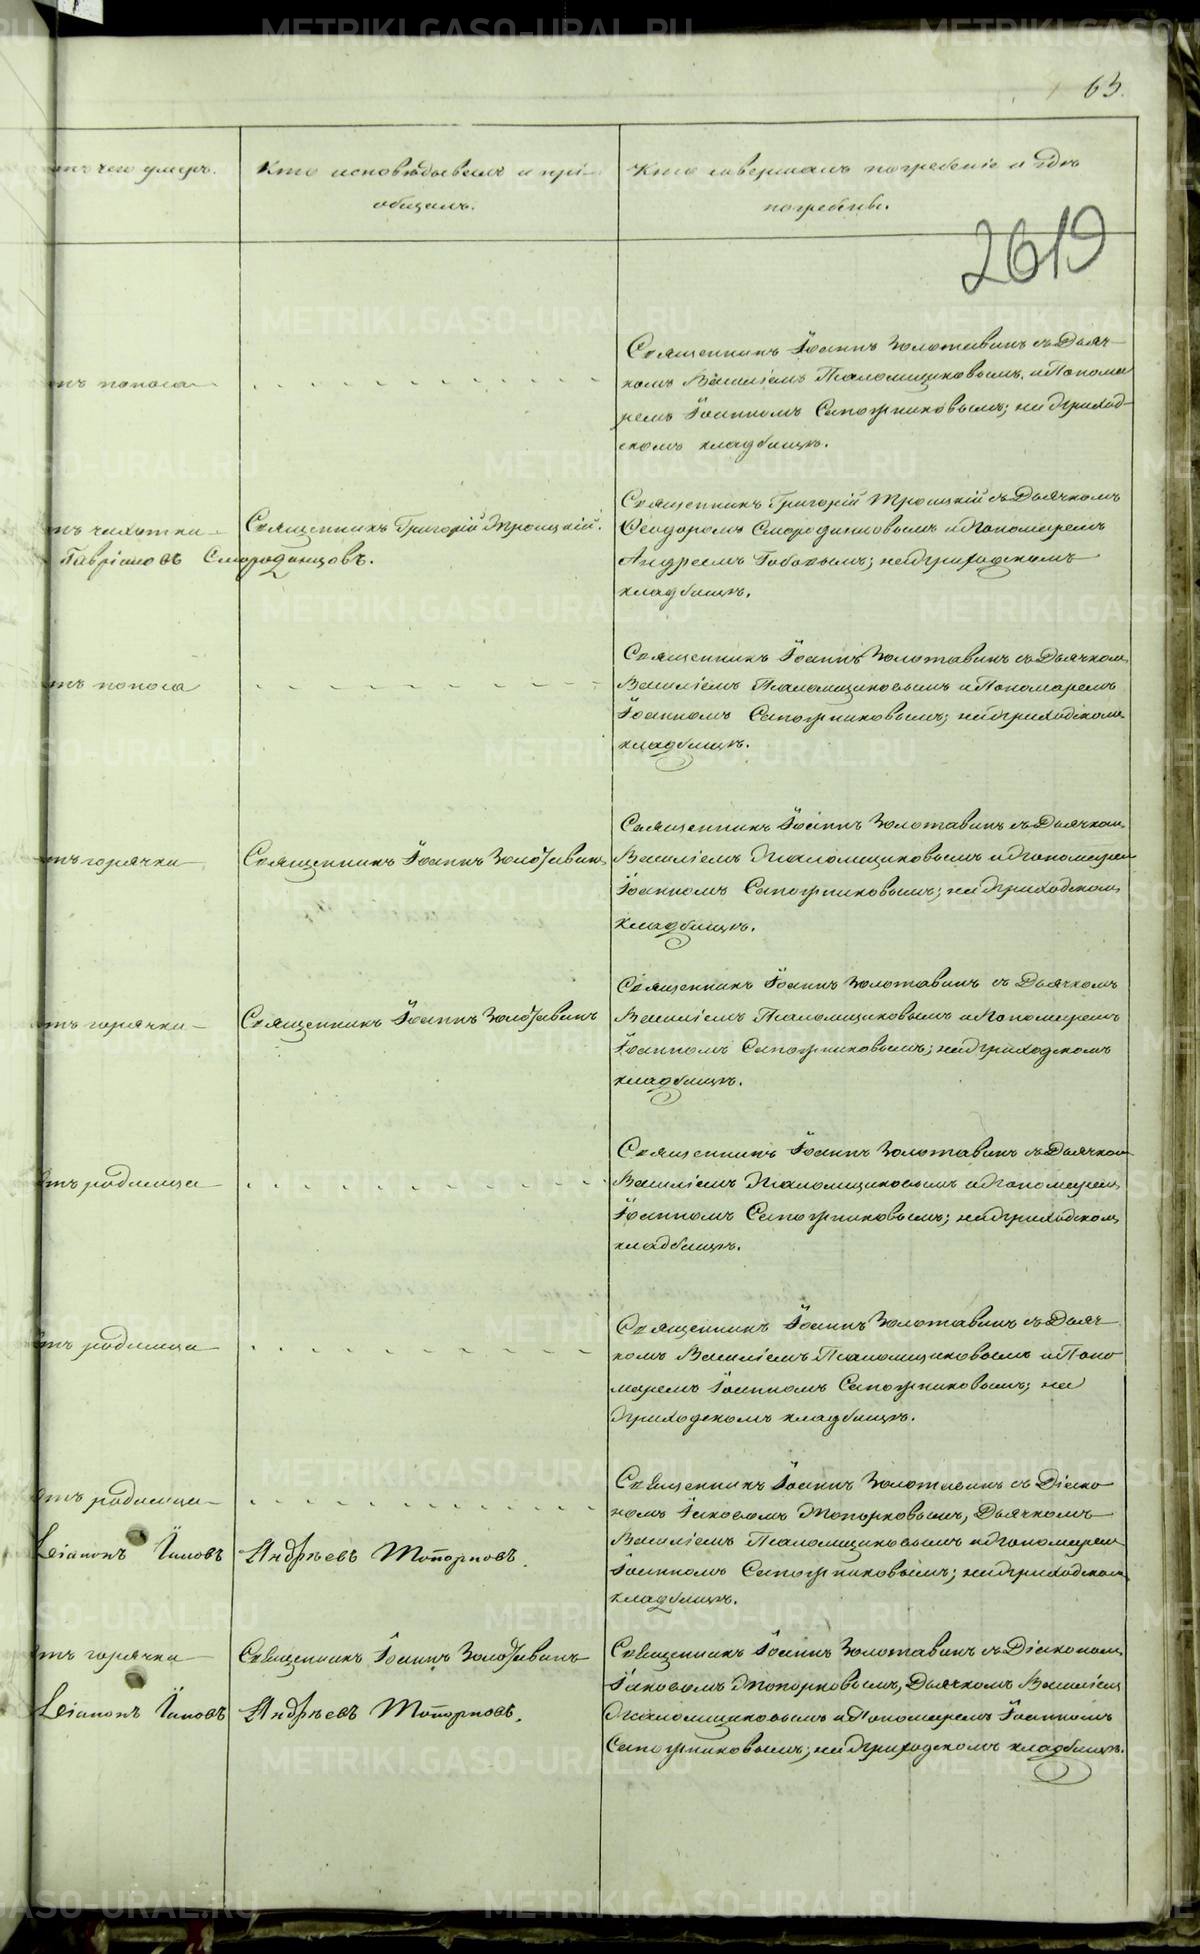 63.
отъ чего умеръ.
Кто исповѣдывалъ и прі-
общалъ.
Кто совершалъ погребеніе и гдѣ
погребены.
2619
отъ поноса
Священникъ Іоаннъ Золотавинъ съ Дьяч-
комъ Василіемъ Пталомщиковымъ и Понома
ремъ Іоанномъ Сапожниковымъ; на приход-
скомъ кладбищѣ.
отъ чахотки
Священникъ Григорій Троицкій.
Гавріиловъ Смородинцовъ.
Священникъ Григорій Троицкій съ Дьячкомъ
Ѳеодоромъ Смородинцовымъ и Пономаремъ
Андреемъ Бабовымъ; на приходскомъ
кладбищѣ.
отъ поноса
Священникъ Іоаннъ Золотавинъ съ Дьячком
Василіемъ Псаломщиковымъ и Пономаремъ
Іоанномъ Сапожниковымъ; на приходскомъ
кладбищѣ.
отъ горячки
Священникъ Іоаннъ Золотавинъ
Священникъ Іоаннъ Золотавинъ съ Дьячком
Василіемъ Псаломщиковымъ и Пономарем
Іоанномъ Сапожниковымъ; на приходском
кладбищѣ.
отъ горячки
Священникъ Іоаннъ Золотавинъ
Священникъ Іоаннъ Золотавинъ съ Дьячкомъ
Василіемъ Псаломщиковымъ и Пономаремъ
Іоанномъ Сапожниковымъ; на приходскомъ
кладбищѣ.
отъ родимца
Священникъ Іоаннъ Золотавинъ съ Дьячком
Василіемъ Псаломщиковымъ и Пономарем
Іоанномъ Сапожниковымъ; на приходском
кладбищѣ.
отъ родимца
Священникъ Іоаннъ Золотавинъ съ Дьяч
комъ Василіемъ Псаломщиковымъ и Поно
маремъ Іоанномъ Сапожниковымъ; на
приходскомъ кладбищѣ.
отъ родимца
Священникъ Іоаннъ Золотавинъ съ Діако
номъ Іаковомъ Топорковымъ, Дьячкомъ
Діаконъ Іаковъ Андрѣевъ Топорковъ.
Василіемъ Псаломщиковымъ и Пономарем
Іоанномъ Сапожниковымъ; на приходском
кладбищѣ.
отъ горячки
Священникъ Іоаннъ Золотавинъ
Священникъ Іоаннъ Золотавинъ съ Діакономъ
Іаковомъ Топорковымъ, Дьячкомъ Василіем
Діаконъ Іаковъ Андрѣевъ Топорковъ.
Псаломщиковымъ и Пономаремъ Іоанномъ
Сапожниковымъ; на приходскомъ кладбищѣ.
METRIKI.GASO-URAL.RU